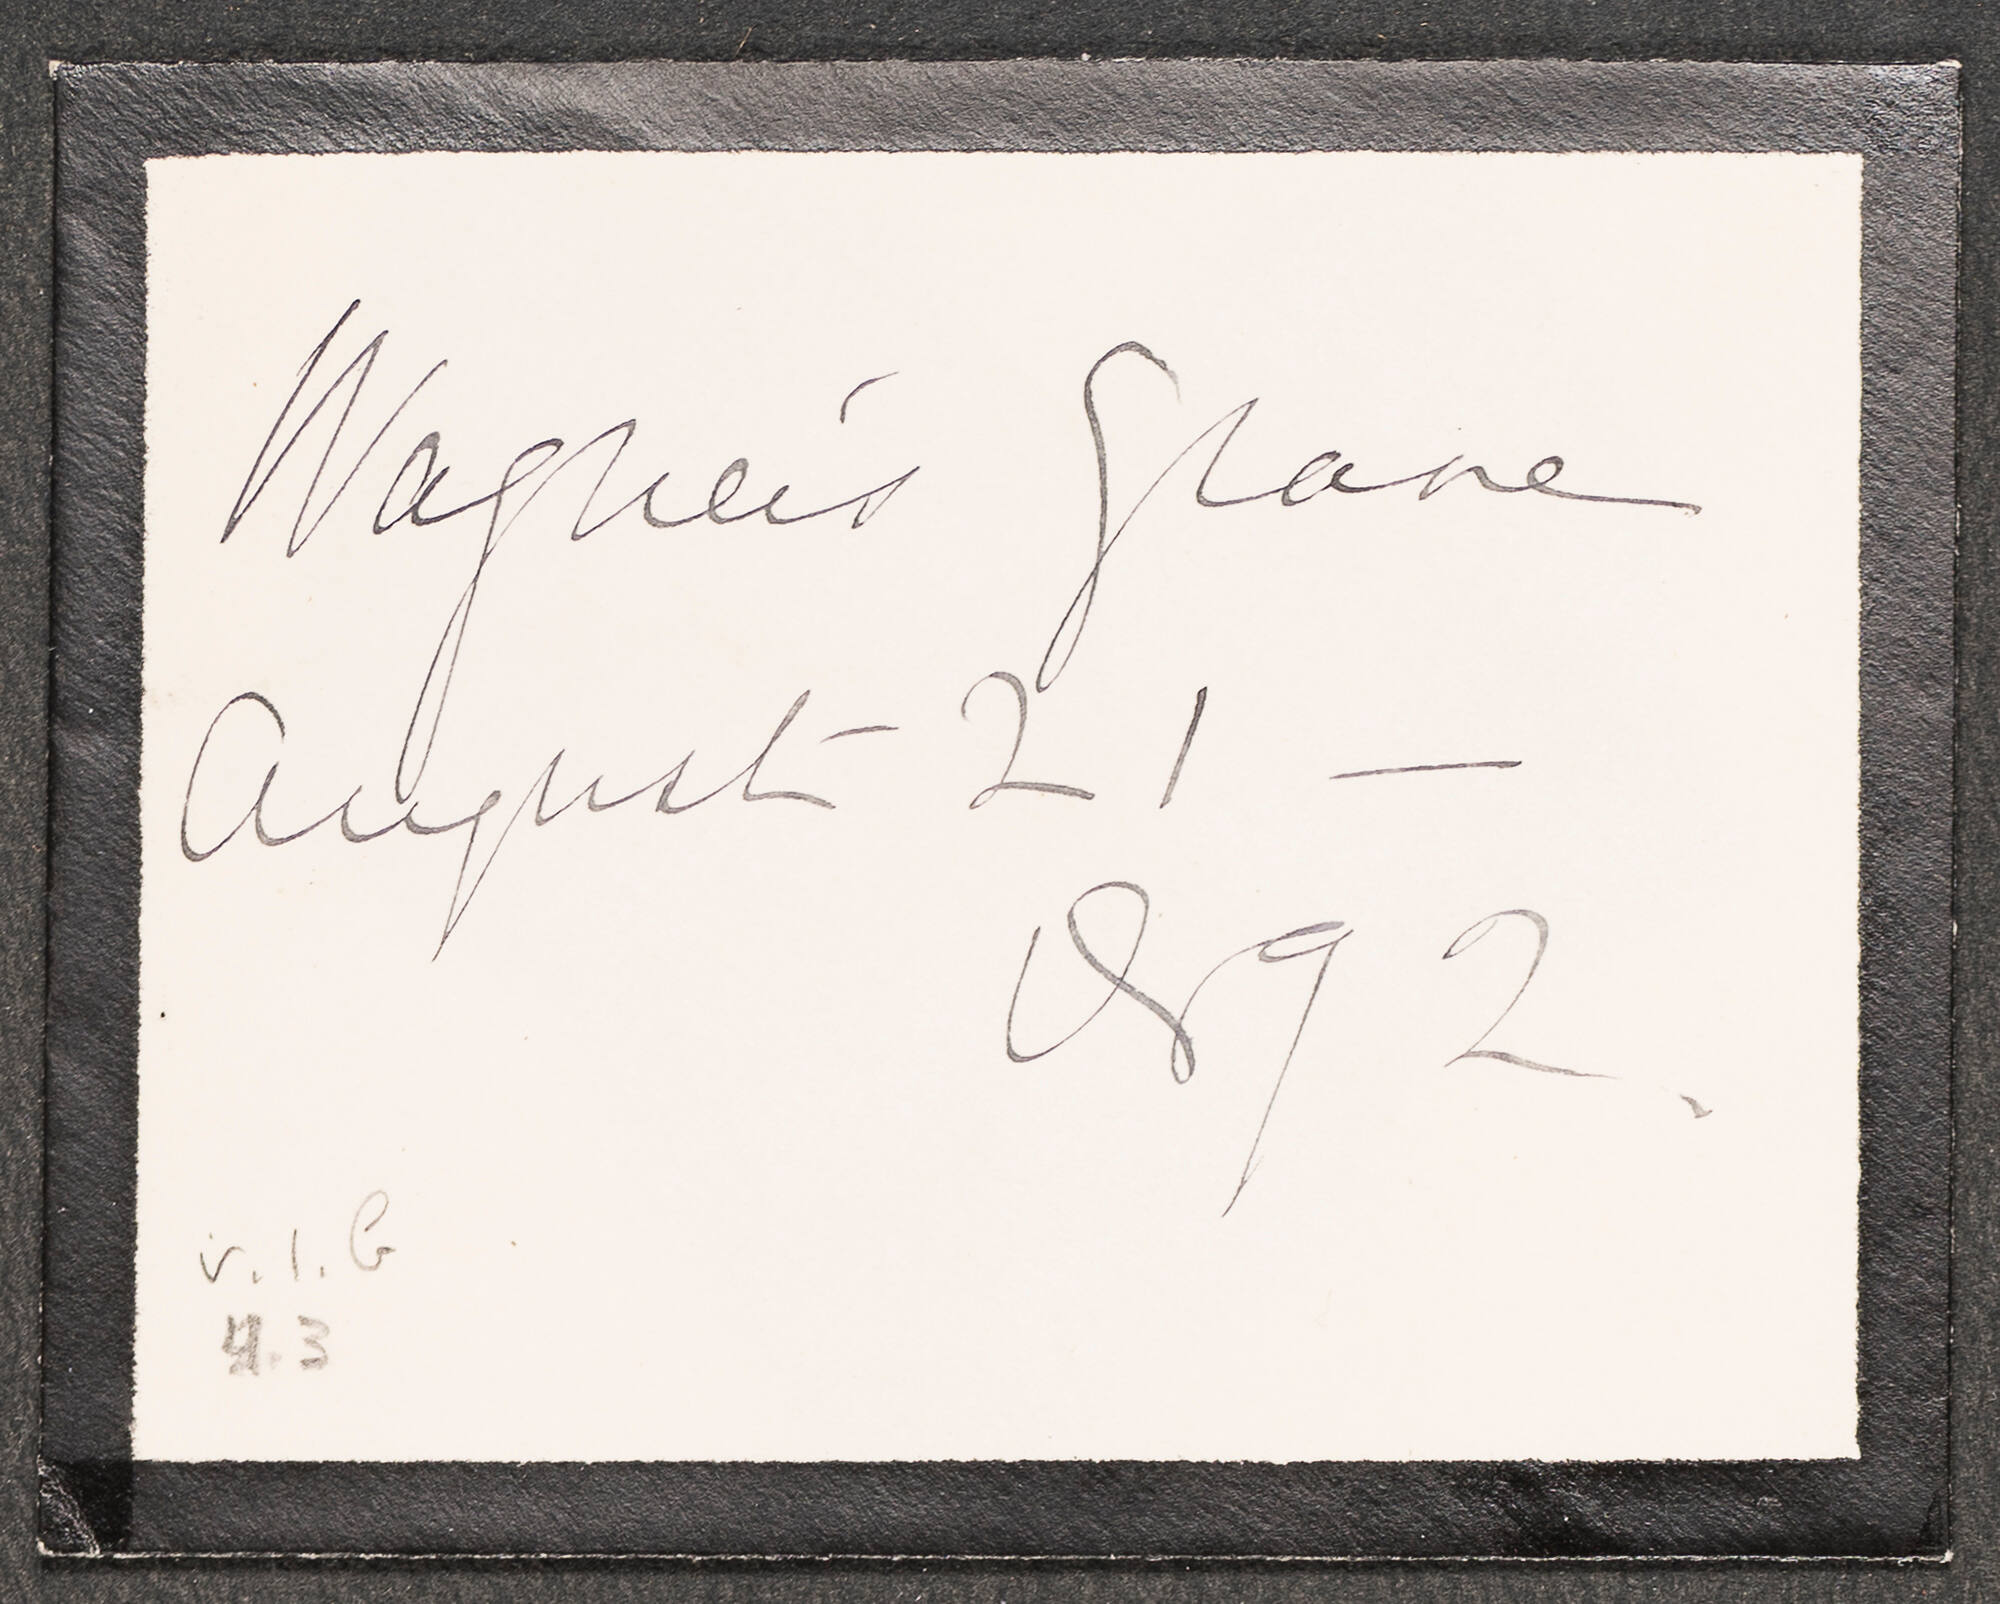 Wagner's Grave
August 21 —
1892.
v.1.6
4.3